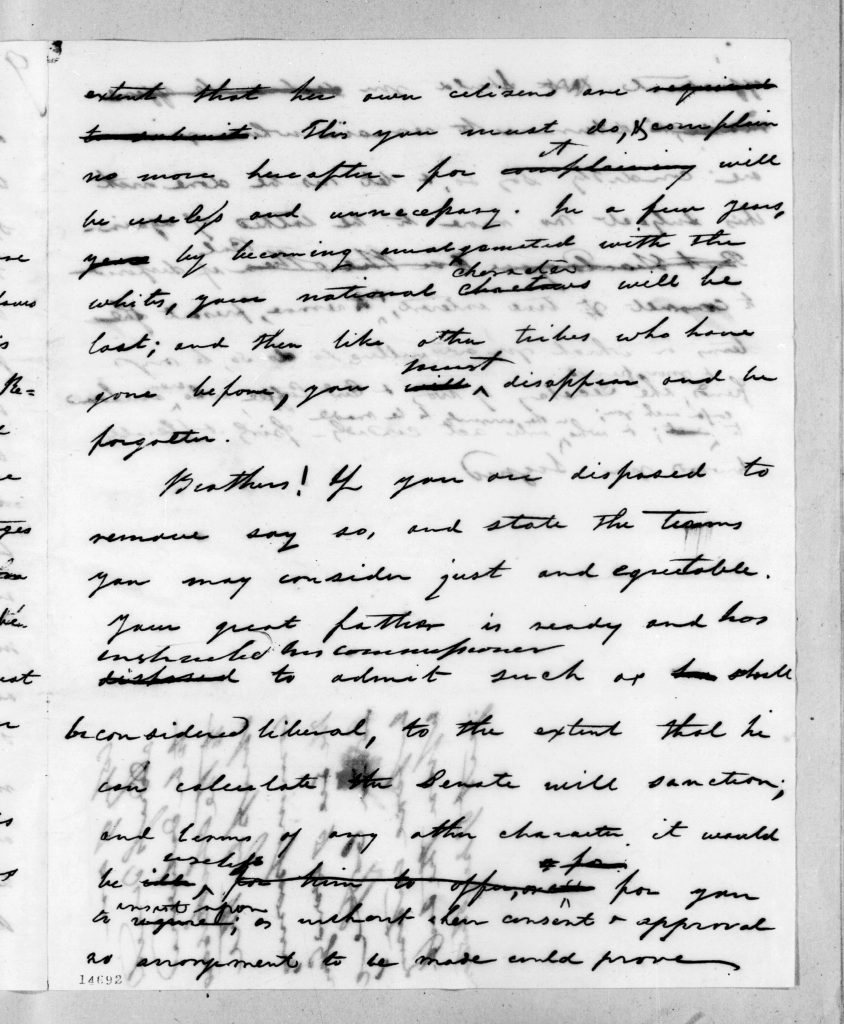 extent that her own citizens are required
to submit. This you must do, & complain
no more hereafter – for complaining it will
be useless and unnecessary. In a few years,
years by becoming amalgamated with the
whites, your national charectors character will be
lost; and then like other tribes who have
gone before, you will must disappear and be
forgotten.
Brothers! If you are disposed to
remove say so, and state the terms
you may consider just and equitable.
Your great father is ready and has
instructed his commissioner
disposed to admit such as shall
be considered liberal, to the extent that he
can calculate the Senate will sanction;
and terms of any other character it would
be useless for him to offer, or for you
to require insist upon; as without their consent & approval
no arrangement to be made could prove
14692
ges